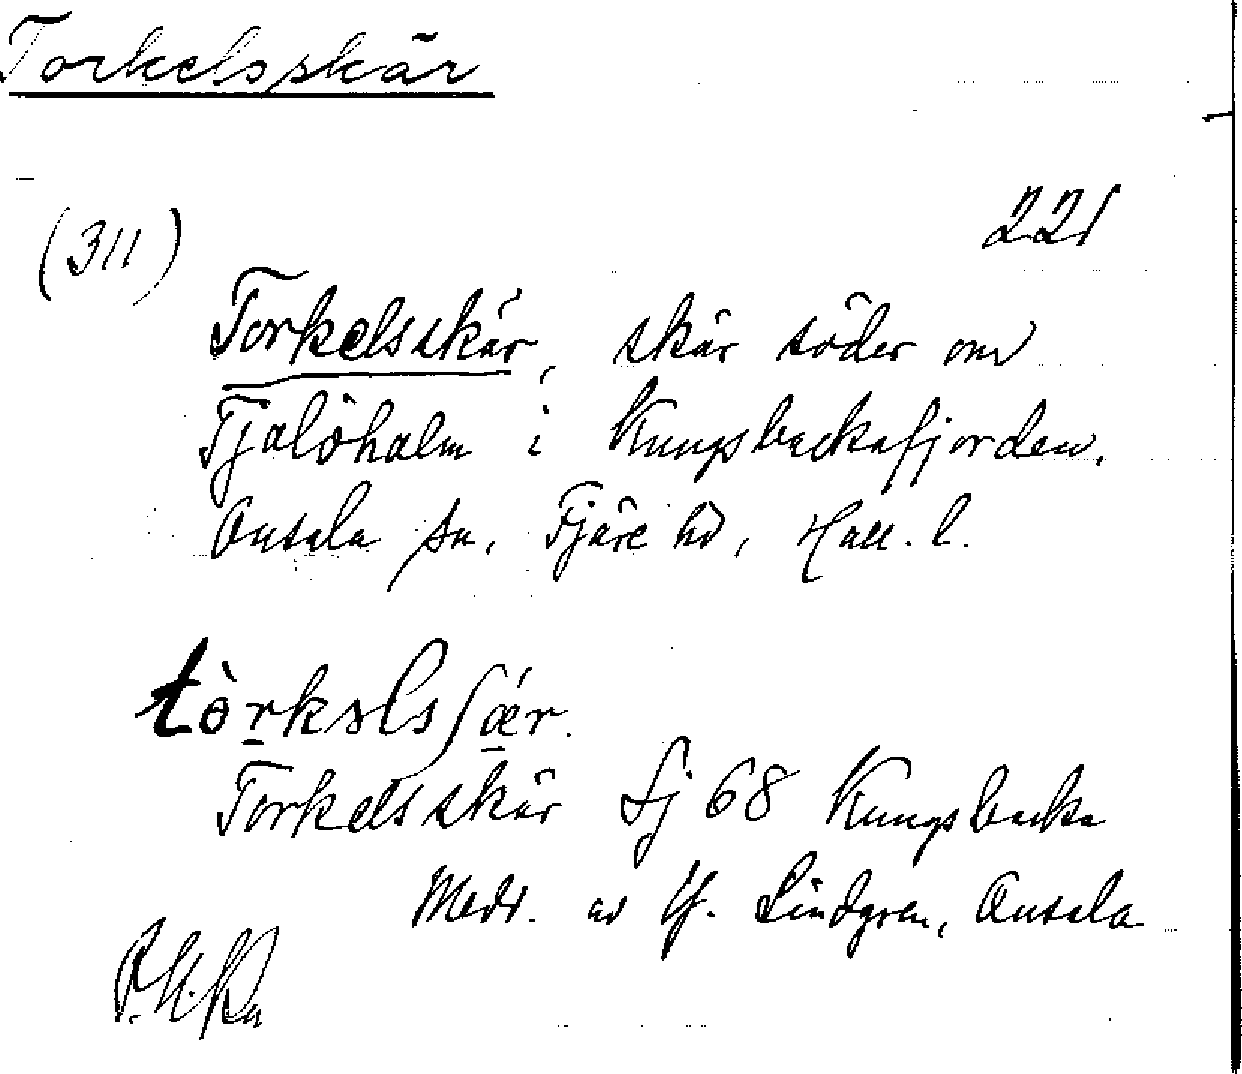 Torkelsskär
(311)
221
Torkelsskär, skär söder om
Tjolöholm i Kungsbackafjorden,
Onsala sn, Fjäre hd, Hall. l.
tòrkəlsʃǽr.
Torkelsskär Sj 68 Kungsbacka
Medd. av Lindgren, Onsala